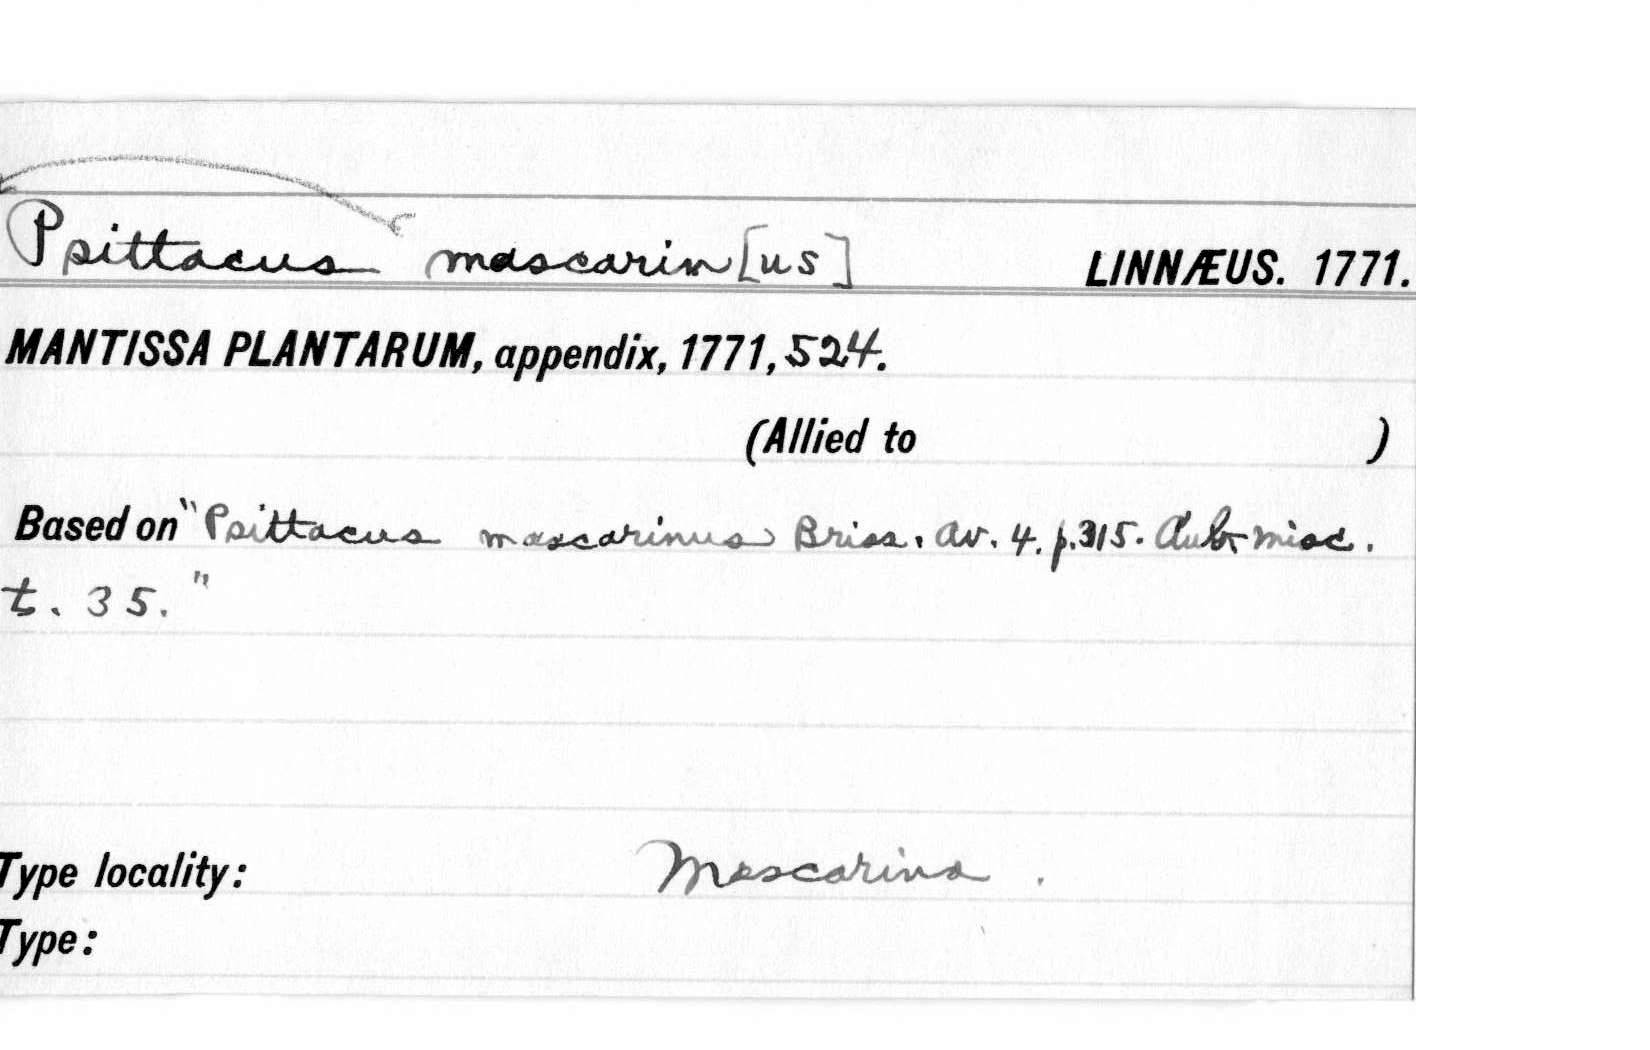 Psittacus mascarin[us] LINNÆUS. 1771.
MANTISSA PLANTARUM, appendix, 1771, 524.
(Allied to )
Based on "Psittacus mascarinus Briss. av. 4. p.315. Aub. misc.
t. 35."
Type locality: Mascarina.
Type: